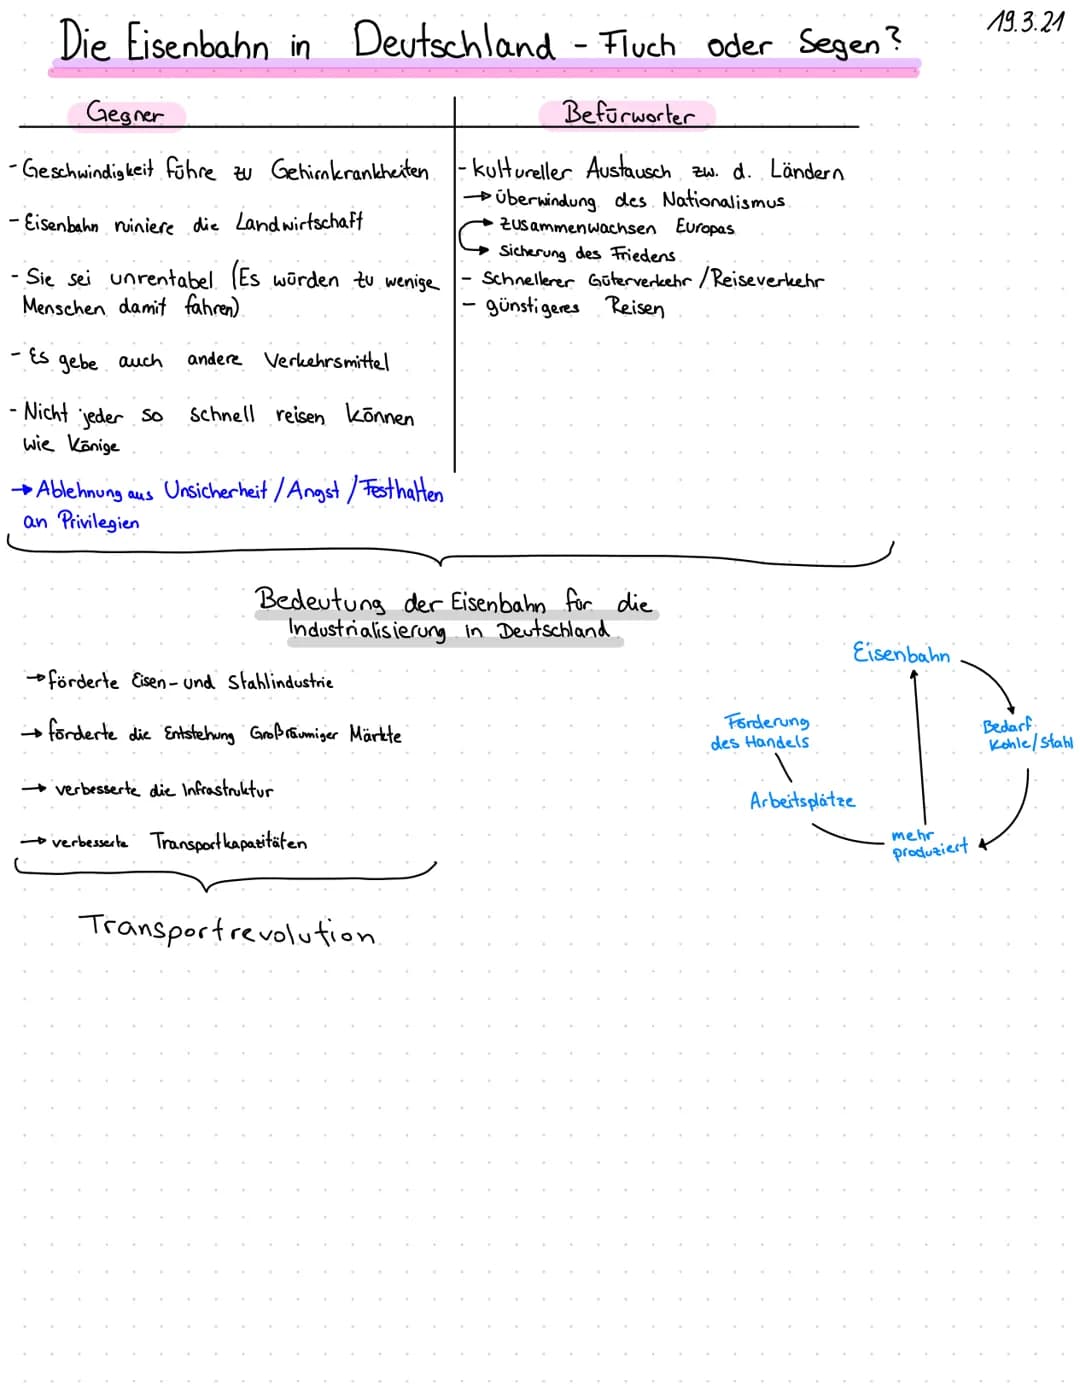 19.3.21
Die Eisenbahn in Deutschland - Fluch oder Segen?
Gegner
- Geschwindigkeit führe zu Gehirnkrankheiten
- Eisenbahn ruiniere die Landwirtschaft
- Sie sei unrentabel (Es würden zu wenige
Menschen damit fahren)
- Es gebe auch andere Verkehrsmittel
- Nicht jeder so schnell reisen können
wie Könige
→ Ablehnung aus Unsicherheit / Angst / Festhalten
an Privilegien
Befürworter
- kultureller Austausch zw. d. Ländern
→ Überwindung des Nationalismus
→ Zusammenwachsen Europas
→ Sicherung des Friedens
- Schnellerer Güterverkehr / Reiseverkehr
- günstigeres Reisen
Bedeutung der Eisenbahn für die
Industrialisierung in Deutschland
→ förderte Eisen- und Stahlindustrie
→ förderte die Entstehung Großräumiger Märkte
→ verbesserte die Infrastruktur
→ verbesserte Transportkapazitäten
Transportrevolution
Eisenbahn
Bedarf
Kohle/Stahl
mehr
produziert
Arbeitsplätze
Förderung
des Handels